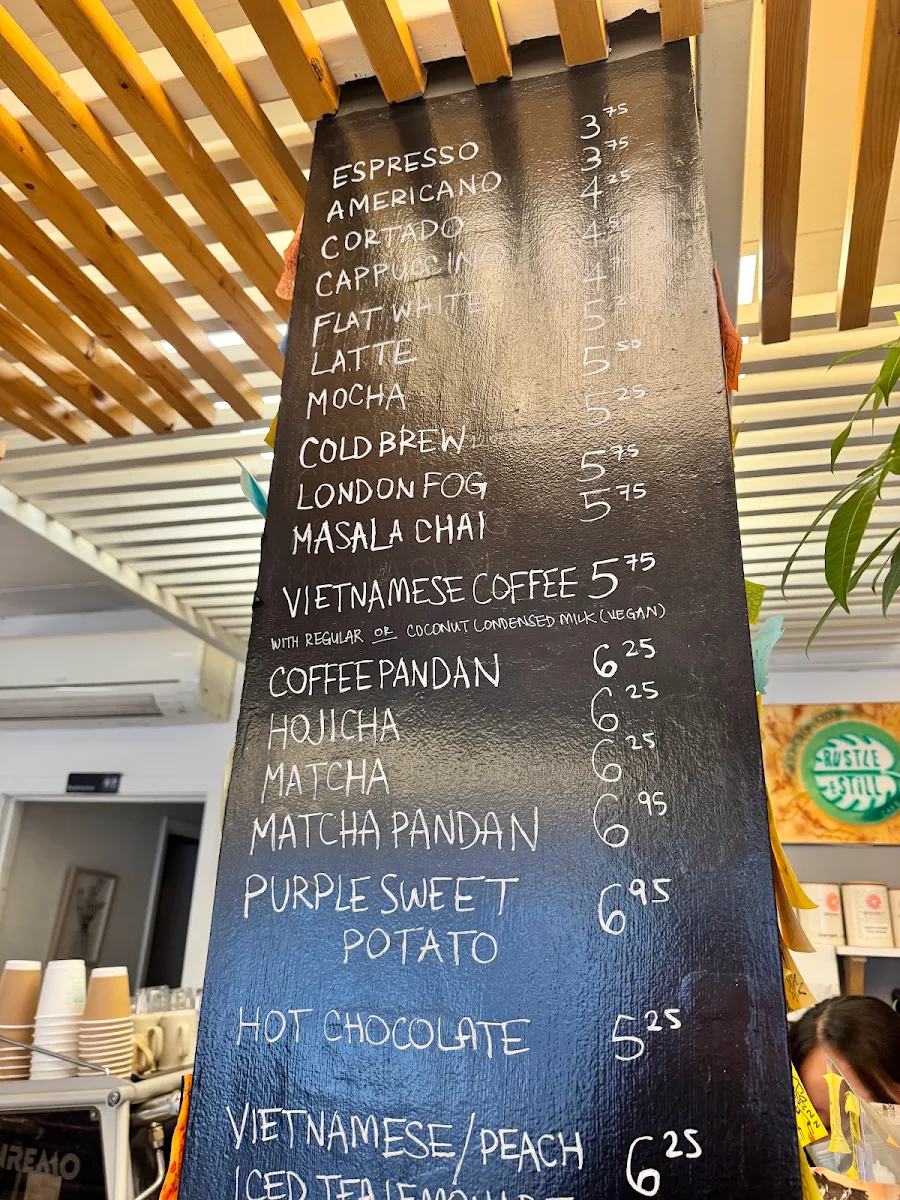 ESPRESSO 3 75
AMERICANO 3 75
CORTADO 4 25
CAPPUCCINO
FLAT WHITE
LATTE
MOCHA 5 50
COLD BREW 5 25
LONDON FOG 5 75
MASALA CHAI 5 75
VIETNAMESE COFFEE 5 75
WITH REGULAR OR COCONUT CONDENSED MILK (VEGAN)
COFFEE PANDAN 6 25
HOJICHA 6 25
MATCHA 6 25
MATCHA PANDAN 6 95
PURPLE SWEET 6 95
POTATO
HOT CHOCOLATE 5 25
VIETNAMESE/PEACH 6 25
ICED TEA LEMONADE
RUSTLE
& STILL